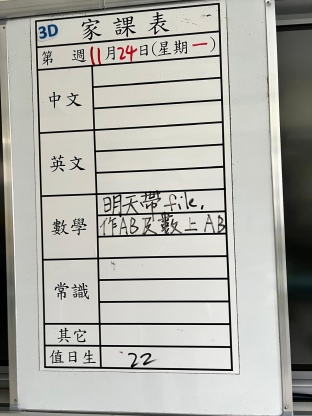 3D 家課表
第 週 11月24日(星期一)
中文
英文
數學 明天帶file,
作AB及數上AB
常識
其它
值日生 22